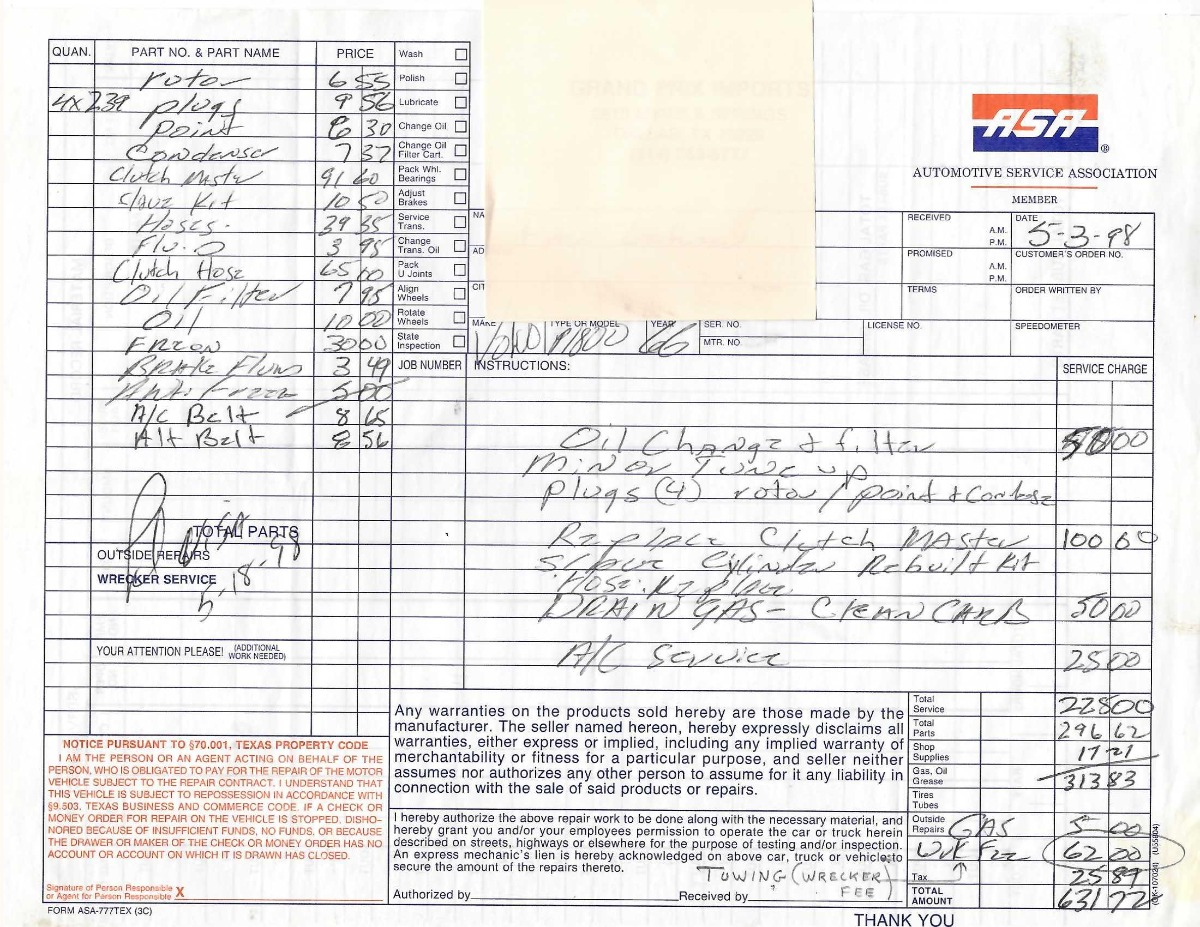 QUAN. PART NO. & PART NAME PRICE
rotor 6 55
4x239 plugs 9 56
point 6 30
Condensor 7 37
Clutch Master 91 60
Slave Kit 10 50
Hoses. 39 35
Flu.D 3 95
Clutch Hose 65 00
Oil Filter 7 95
Oil 10 00
FREON 30 00
BRAKE Fluid 3 49
Anti Freeze 5 00
A/C Belt 8 65
Alt Belt 8 56
TOTAL PARTS
OUTSIDE REPAIRS
WRECKER SERVICE
5.18.98
YOUR ATTENTION PLEASE! (ADDITIONAL WORK NEEDED)
Wash
Polish
Lubricate
Change Oil
Change Oil
Filter Cart.
Pack Whl.
Bearings
Adjust
Brakes
Service
Trans.
Change
Trans. Oil
Pack
U Joints
Align
Wheels
Rotate
Wheels
State
Inspection
ASA ®
AUTOMOTIVE SERVICE ASSOCIATION
MEMBER
RECEIVED A.M. P.M. DATE 5-3-98
PROMISED A.M. P.M. CUSTOMER'S ORDER NO.
TERMS ORDER WRITTEN BY
MAKE TYPE OR MODEL YEAR SER. NO. LICENSE NO. SPEEDOMETER
Volvo P1800 66 MTR. NO.
JOB NUMBER INSTRUCTIONS: SERVICE CHARGE
Oil Change & filter 00
Minor Tune up
plugs (4) rotor / point &
Replace Clutch Master 100 00
Cylinder Rebuilt Kit
Hose. Replace
DRAIN GAS - CLEAN CARB 50 00
A/C Service 25 00
NOTICE PURSUANT TO §70.001, TEXAS PROPERTY CODE
I AM THE PERSON OR AN AGENT ACTING ON BEHALF OF THE
PERSON, WHO IS OBLIGATED TO PAY FOR THE REPAIR OF THE MOTOR
VEHICLE SUBJECT TO THE REPAIR CONTRACT. I UNDERSTAND THAT
THIS VEHICLE IS SUBJECT TO REPOSSESSION IN ACCORDANCE WITH
§9.503, TEXAS BUSINESS AND COMMERCE CODE. IF A CHECK OR
MONEY ORDER FOR REPAIR ON THE VEHICLE IS STOPPED, DISHO-
NORED BECAUSE OF INSUFFICIENT FUNDS, NO FUNDS, OR BECAUSE
THE DRAWER OR MAKER OF THE CHECK OR MONEY ORDER HAS NO
ACCOUNT OR ACCOUNT ON WHICH IT IS DRAWN HAS CLOSED.
Signature of Person Responsible
or Agent for Person Responsible X
FORM ASA-777TEX (3C)
Any warranties on the products sold hereby are those made by the
manufacturer. The seller named hereon, hereby expressly disclaims all
warranties, either express or implied, including any implied warranty of
merchantability or fitness for a particular purpose, and seller neither
assumes nor authorizes any other person to assume for it any liability in
connection with the sale of said products or repairs.
I hereby authorize the above repair work to be done along with the necessary material, and
hereby grant you and/or your employees permission to operate the car or truck herein
described on streets, highways or elsewhere for the purpose of testing and/or inspection.
An express mechanic's lien is hereby acknowledged on above car, truck or vehicle to
secure the amount of the repairs thereto.
TOWING (WRECKER FEE)
Authorized by Received by
Total Service 228 00
Total Parts 296 62
Shop Supplies 17 21
Gas, Oil Grease 313 83
Tires Tubes
Outside Repairs GAS 5 00
Wrk Fee 62 00
Tax 25 89
TOTAL AMOUNT 631 72
THANK YOU